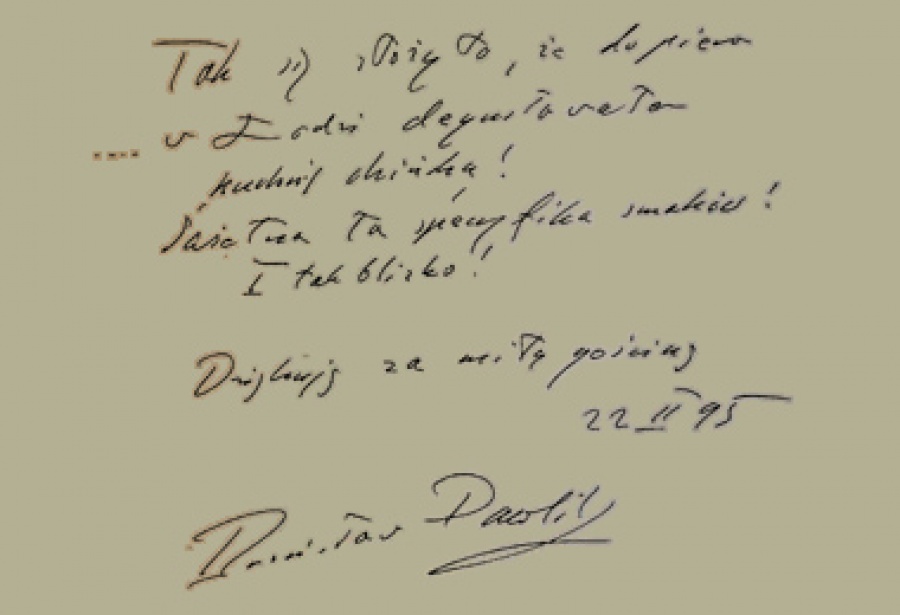 Tak się złożyło, że dopiero
w Łodzi degustowałem
kuchnię chińską!
Świetna ta specyfika smaków!
I tak blisko!
Dziękuję za miłą gościnę
22 II 95
Bronisław Pawlik